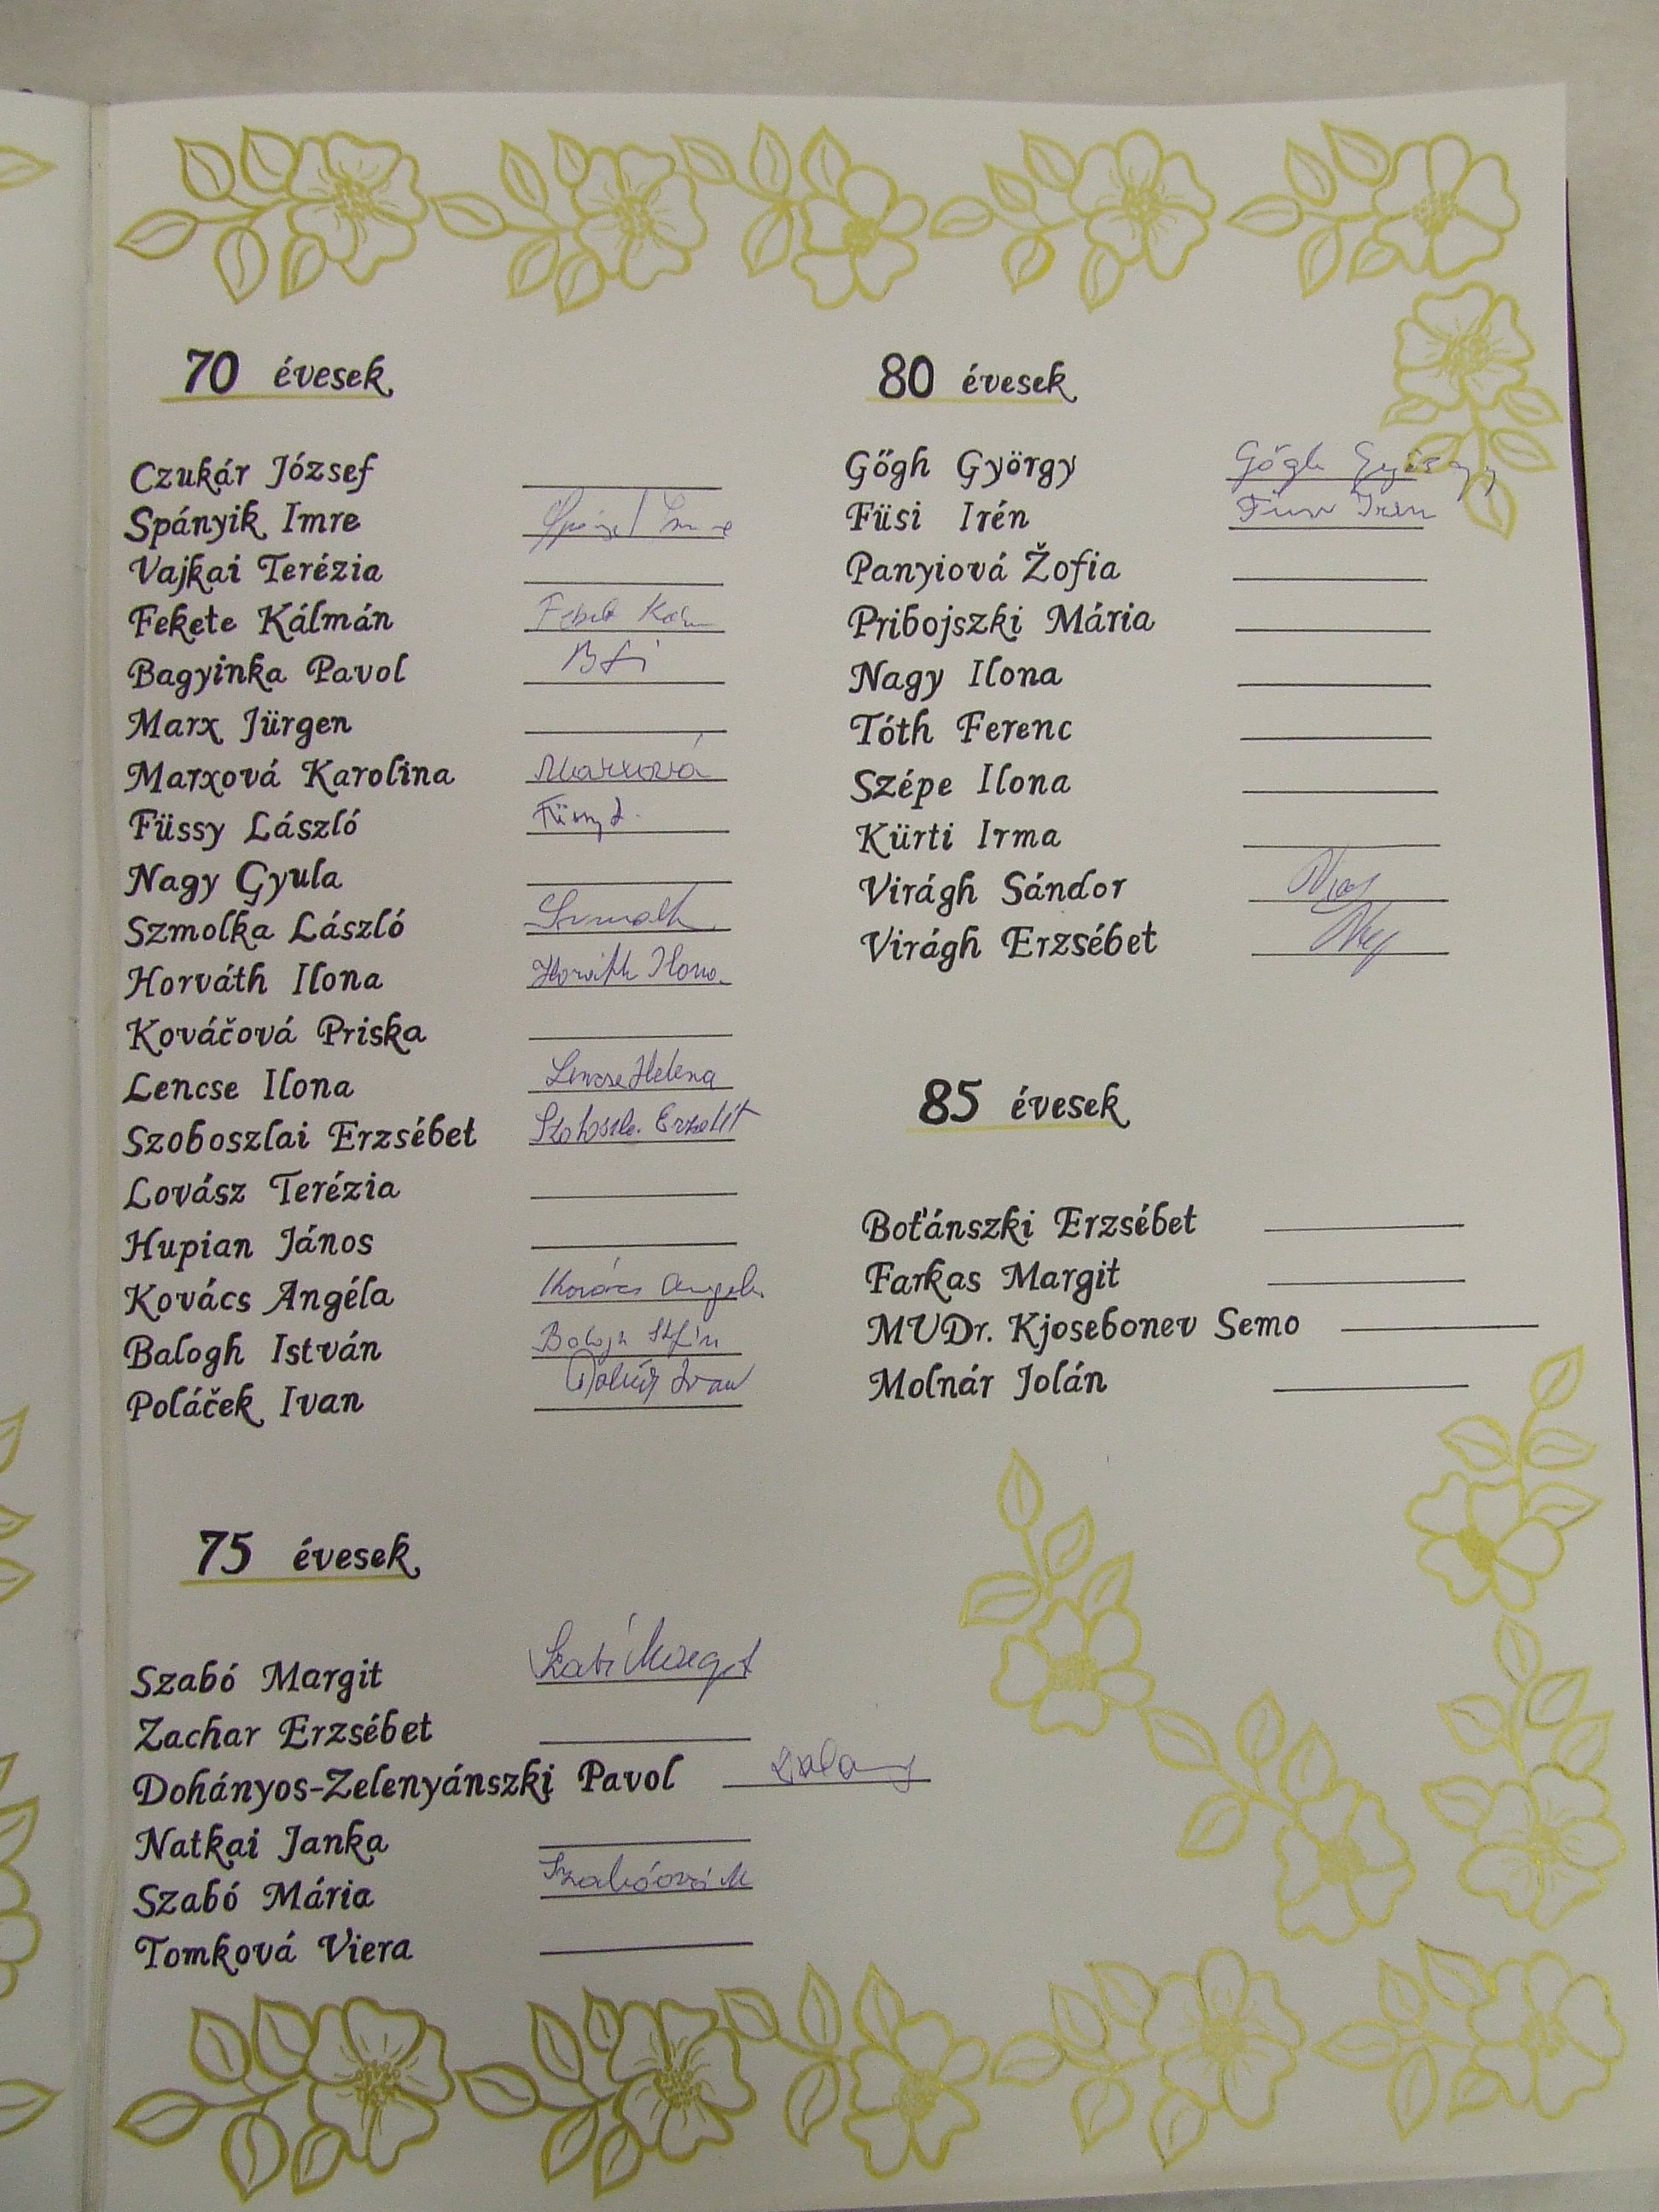 70 évesek
Czukár József
Spányik Imre
Vajkai Terézia
Fekete Kálmán
Bagyinka Pavol
Marx Jürgen
Marxová Karolina Marxová
Füssy László Füssy L.
Nagy Gyula
Szmolka László
Horváth Ilona Horváth Ilona
Kováčová Priska
Lencse Ilona Lencse Helena
Szoboszlai Erzsébet
Lovász Terézia
Hupian János
Kovács Angéla Kovács Angela
Balogh István Balogh
Poláček Ivan Ivan
75 évesek
Szabó Margit Szabó Margit
Zachar Erzsébet
Dohányos-Zelenyánszki Pavol
Natkai Janka
Szabó Mária Szabóová M
Tomková Viera
80 évesek
Gőgh György Gőgh György
Füsi Irén Irén
Panyiová Žofia
Pribojszki Mária
Nagy Ilona
Tóth Ferenc
Szépe Ilona
Kürti Irma
Virágh Sándor
Virágh Erzsébet
85 évesek
Boťánszki Erzsébet
Farkas Margit
MUDr. Kjosebonev Semo
Molnár Jolán